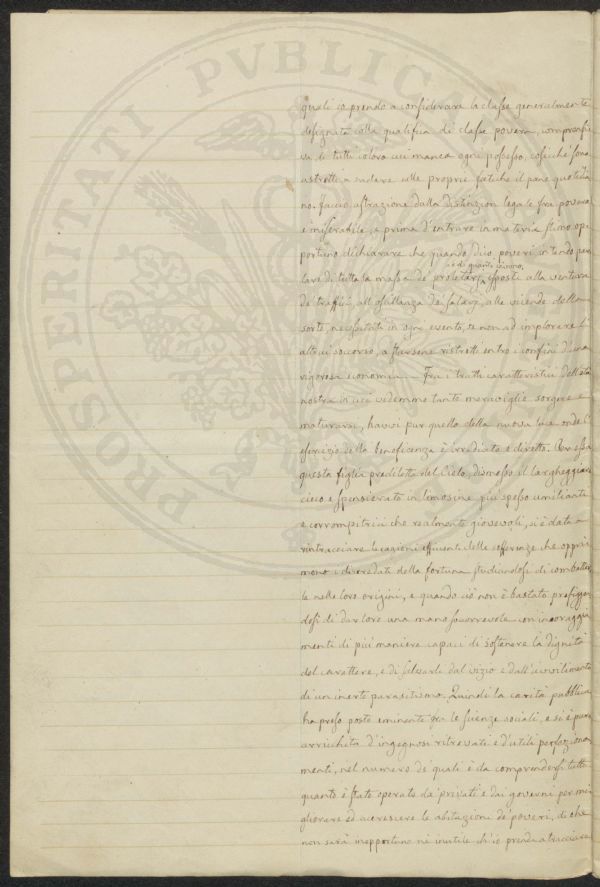 PROSPERITATI PVBLICAE
quali io prendo a considerare la classe generalmente
designata colla qualifica di classe povera, compronsi
va di tutti coloro cui manca ogni possesso, cosicché sono
costretti a sudare colle proprie fatiche il pane quotidia
no. faccio astrazione dalla distinzion legale fra povero
e miserabile, e prima d'entrare in materia stimo op
portuno dichiarare che quando dico poveri intendo par
lare di tutta la massa de' proletarj, e di quanti vivono, esposti alla ventura
de' traffici, all' oscillanza de' salarj, alle vicende della
sorte, necessitati in ogni evento, se non ad implorare l'
altrui soccorso, a starsene ristretti entro i confini d'una
rigorosa economia. — Fra i tratti caratteristici dell'età
nostra in cui vedemmo tante meraviglie sorgere e
maturarsi, havvi pur quello della nuova luce onde l'
esercizio della beneficenza è irradiato e diretto. Per essa
questa figlia prediletta del Cielo, dismesso il largheggiare
cieco e spensierato in limosine più spesso umilianti
e corrompitrici che realmente giovevoli, si è data a
rintracciare le cagioni efficienti delle sofferenze che oppri
mono i diseredati della fortuna studiandosi di combatter
le nelle loro origini, e quando ciò non è bastato prefiggen
dosi di dar loro una mano soccorrevole con incoraggia
menti di più maniere capaci di sostenere la dignità
del carattere, e di salvarli dal vizio e dall'invilimento
di un inerte parasitismo. Quindi la carità pubblica
ha preso posto eminente fra le scienze sociali, e si è pure
arricchita d'ingegnosi ritrovati e d'utili perfeziona
menti, nel numero de' quali è da comprendersi tutto
quanto è stato operato da' privati e dai governi per mi
gliorare ed accrescere le abitazioni de' poveri, di che
non sarà inopportuno nè inutile ch'io prenda a tracciare